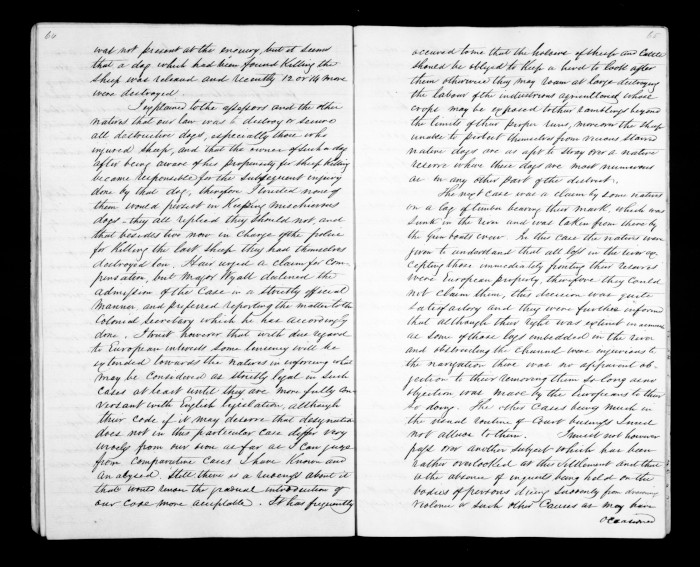 64
was not present at the enquiry, but it seems
that a dog which had been found killing the
sheep was released and recently 12 or 14 more
were destroyed.
I explained to the assessors and the other
natives that our law was to destroy or secure
all destructive dogs, especially those who
injured sheep, and that the owner of such a dog
after being aware of his propensity for sheep killing
became responsible for the subsequent injury
done by that dog, therefore I trusted none of
them would persist in keeping mischievous
dogs – they all replied they should not, and
that besides two now in charge of the police
for killing the last sheep they had themselves
destroyed ten. Hair urged a claim for com-
pensation, but Major Wyatt declined the
admission of the case in a strictly official
manner and preferred reporting the matter to the
Colonial Secretary which he has accordingly
done. I trust however that with due regard
to European interests some leniency will be
extended towards the natives in enforcing what
may be considered as strictly legal in such
cases at least until they are more fully con
versant with English legislation, although
their code if it may deserve that designation
does not in this particular case differ very
widely from our own as far as I can judge
from comparative cases I have known and
analysed. Still there is a about it
that would render the gradual introduction of
our code more acceptable. It has frequently
65
occured to me that the holders of sheep and cattle
should be obliged to keep a herd to look after
them otherwise they may roam at large destroying
the labour of the industrious agriculturist whose
crops may be exposed to their ramblings beyond
the limits of their proper runs, moreover the sheep
unable to protect themselves from vicious starved
native dogs are as apt to stray over a native
reserve where these dogs are most numerous
as in any other part of the district.
The next case was a claim by some natives
on a log of timber bearing their mark, which was
sunk in the river and was taken from there by
the Gun boats crew. In this case the natives were
given to understand that all logs in the river ex-
cepting those immediately fronting their reserves
were European property, therefore they could
not claim them, this decision was quite
satisfactory and they were further informed
that although their right was extinct
as some of those logs embedded in the river
and obstructing the channel were injurious to
the navigation there was no apparent ob-
jection to their removing them so long as no
objection was made by the Europeans to their
so doing. The other cases being much in
the usual routine of Court business I need
not allude to them. I must not however
pass over another subject which has been
rather overlooked at this Settlement and that
is the absence of inquests being held on the
bodies of persons dying suddenly from drowning
violence or such other causes as may have
occasioned